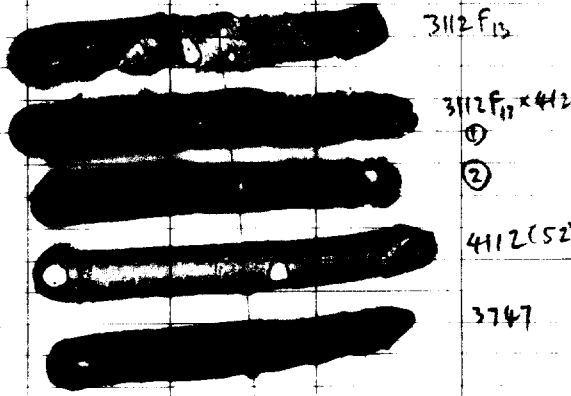 3112 F₁₃
3112 F₁₃ × 412
①
②
4112 (52)
3747